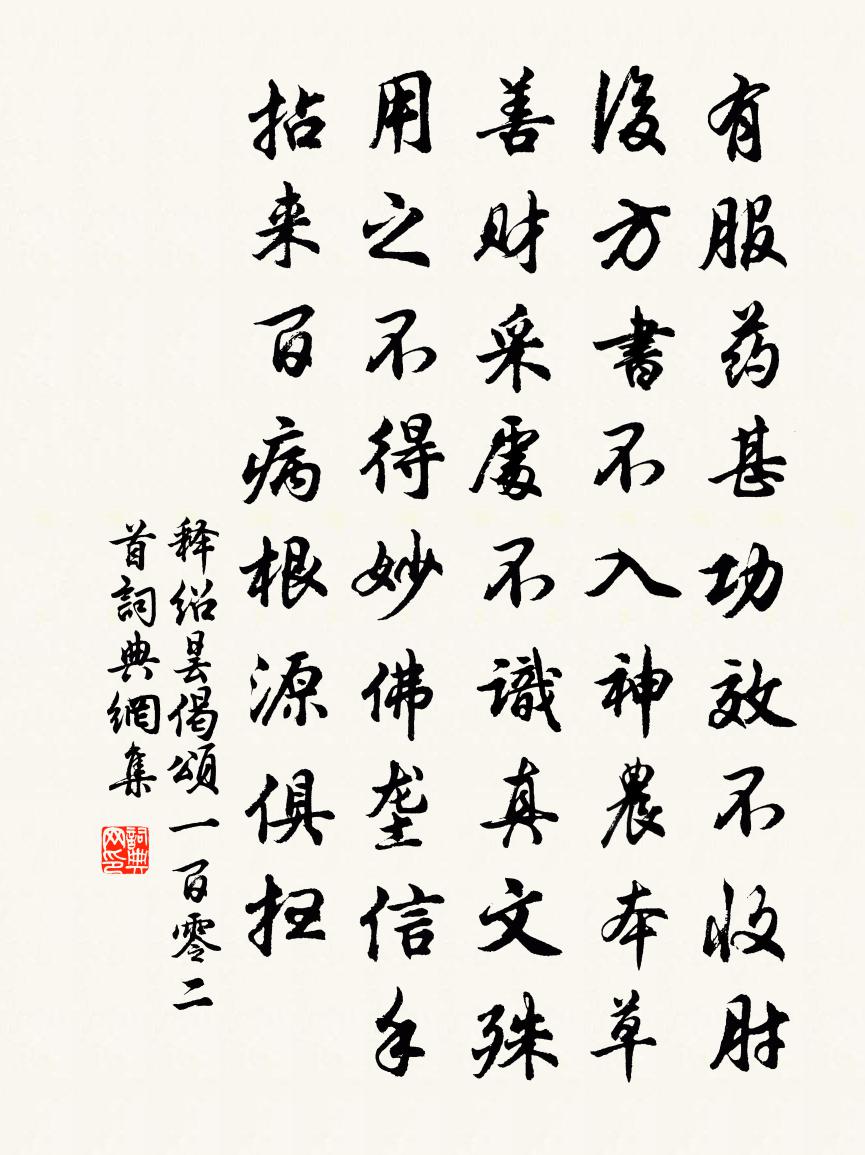 有服药甚功效不收肘
後方書不入神農本草
善财采處不識真文殊
用之不得妙佛垄信手
拈来百病根源俱扭
释绍昙偈頌一百零二
首詞典網集
詞典
网印